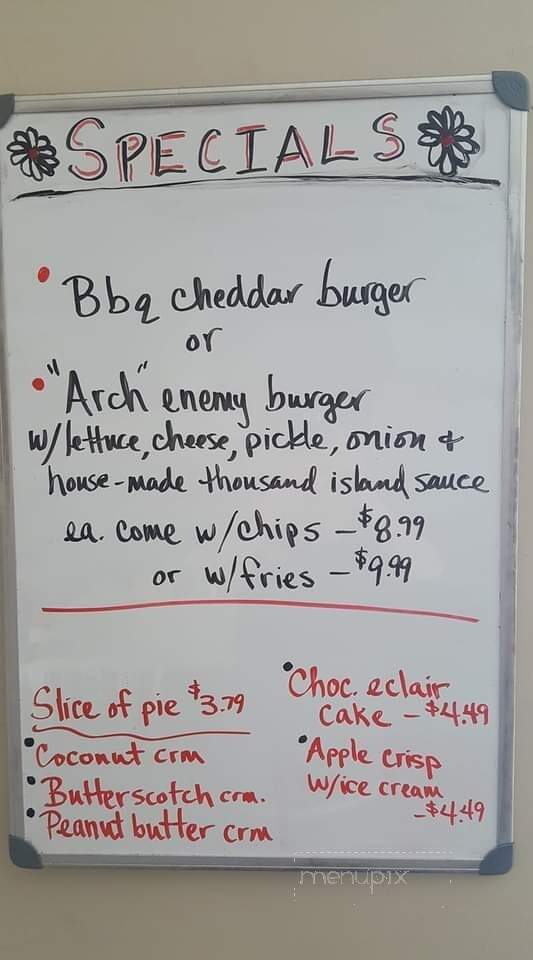 SPECIALS
Bbq cheddar burger
or
"Arch" enemy burger
w/lettuce, cheese, pickle, onion &
house-made thousand island sauce
ea. come w/chips - $8.99
or w/fries - $9.99
Slice of pie $3.79
Coconut crm
Butterscotch crm.
Peanut butter crm
Choc. eclair
cake - $4.49
Apple crisp
w/ice cream
- $4.49
menupix